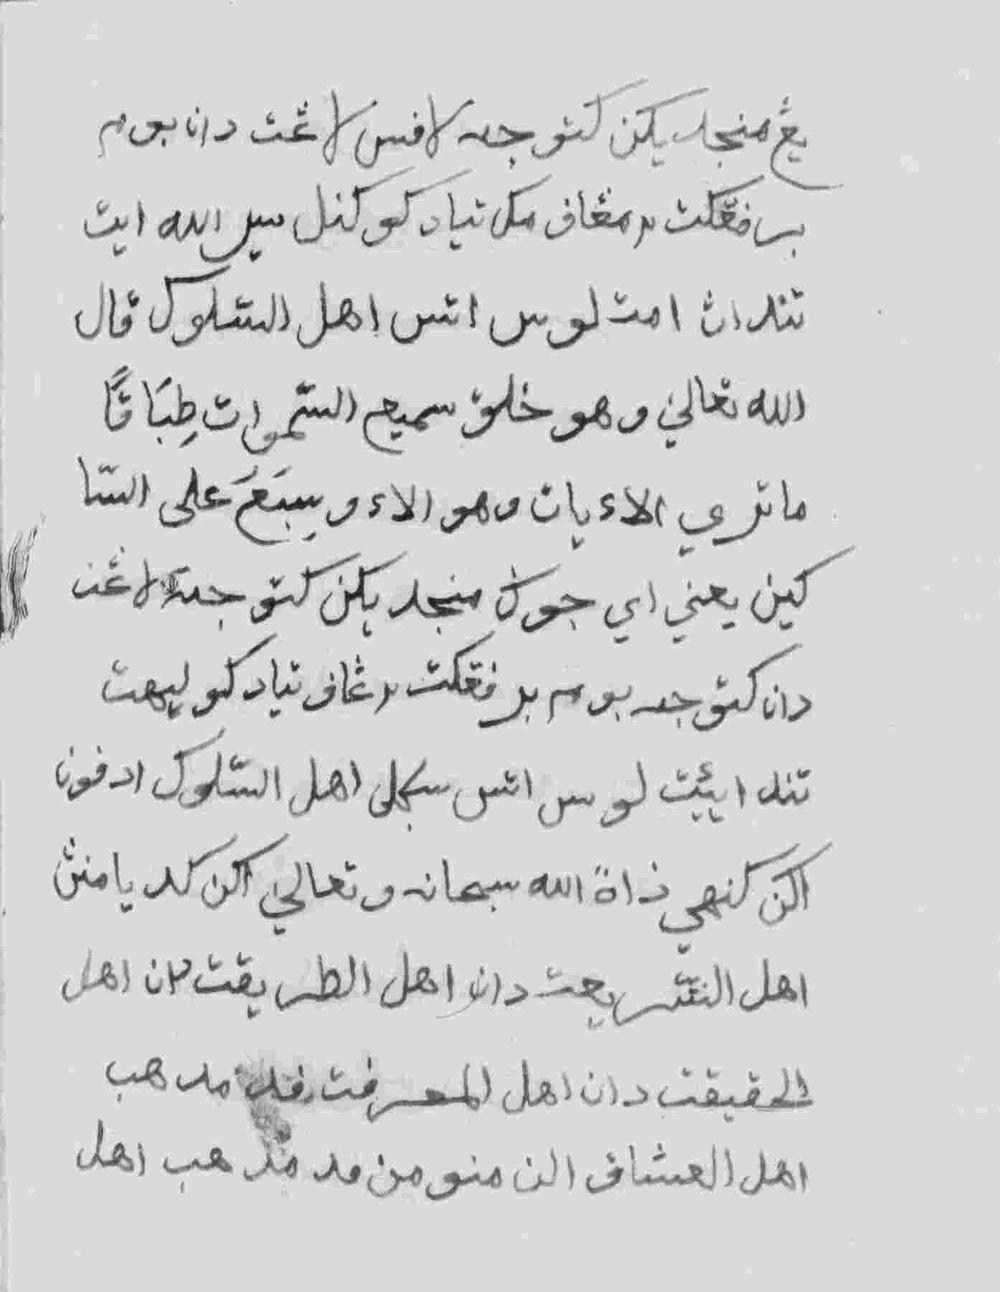 يڠ منجديكن كتوجه لافس لاڠت دان بوم
برفڠكت۲ مڠاف مك تياد كو كنل سير الله ايت
تندان امت لوس اتس اهل السّلوك قال
الله تعالي وهو خلق سميع السّموات طِبَاقًا
ماتري الاءيات وهو الاء ويسبَعَ على السّا
كين يعني اي جوك منجديكن كتوجه لاڠت
دان كتوجه بوم برفڠكت۲ مڠاف تياد كو ليهت
تند ايئيت لوس اتس سكلى اهل السّلوك ادفون
اكن كنهي ذاة الله سبحانه وتعالي اكن كديامنڽ
اهل الشّريعت دان اهل الطريقت دان اهل
الحقيقت دان اهل المعرفت فد مذهب
اهل العشاق الن منومن مذهب اهل